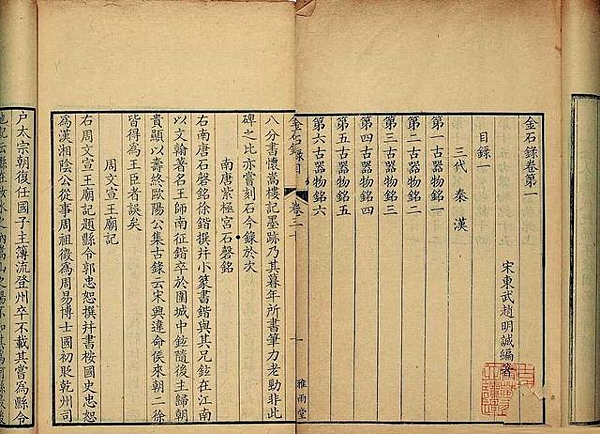 金石錄卷第一
宋東武趙明誠編著
目錄一
三代 秦 漢
第一古器物銘一
第二古器物銘二
第三古器物銘三
第四古器物銘四
第五古器物銘五
第六古器物銘六
金石錄目 卷三十 一 雅雨堂
八分書懷嵩樓記墨跡乃其暮年所書筆力老勁非此
碑之比亦嘗刻石今錄於次
南唐紫極宮石磬銘
右南唐石磬銘徐鍇撰幷小篆書鍇與其兄鉉在江南
以文翰著名王師南征鍇卒於圍城中鉉隨後主歸朝
貴顯以壽終歐陽公集古錄云宋興違命侯來朝二徐
皆得為王臣者誤矣
周文宣王廟記
右周文宣王廟記題縣令郭忠恕撰幷書桉國史忠恕
為漢湘陰公從事周祖徵為周易博士國初貶乾州司
户太宗朝復任國子主簿流登州卒不載其嘗為縣令